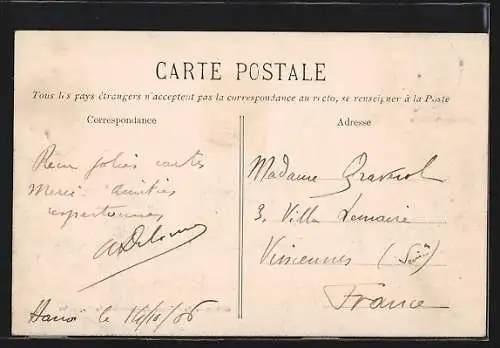 CARTE POSTALE
Tous les pays étrangers n'acceptent pas la correspondance au recto, se renseigner à la Poste
Correspondance
Reçu jolies cartes
Merci amitiés
respectueuses
Hanoi le
Adresse
Madame
3, Villa Lemaire
Vincennes (Seine)
France